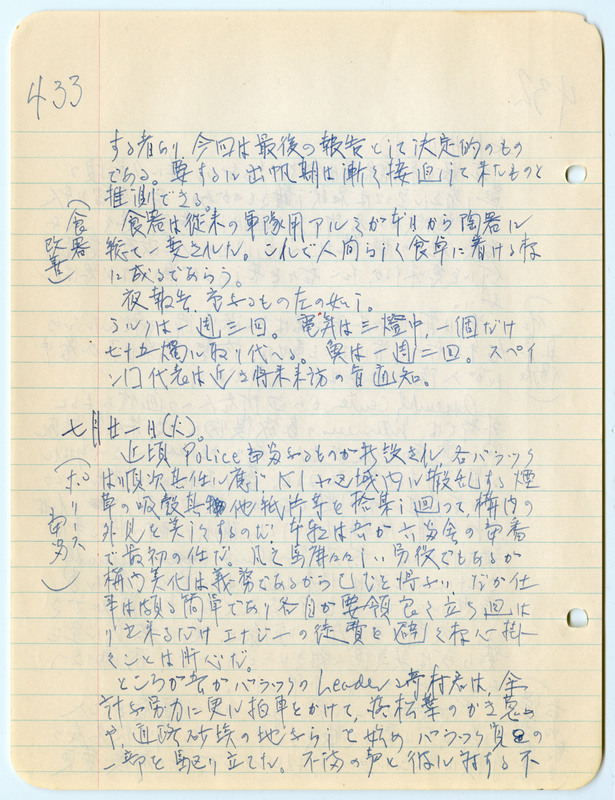 433
する者あり 今回は最後の報告として決定的のもの
である。要するに出帆期は漸く接近して来たものと
推測できる。
(食器改善)
食器は従来の軍隊用アルミが本日から陶器に
総て一変された。これで人間らしく食卓に着ける様
に成るであらう。
夜報告、重なるもの左の如し。
ミルクは一週三回。電気は三燈中、一個だけ
七十五燭に取り代へる。 は一週二回。スペイ
ン国代表は近き将来来訪の旨通知。
七月廿一日(火)。
(ポリース労務)
近頃Police労務なるものが新設され 各バラック
は順次其任に応じ K1ヤ区域内に散乱する煙
草の吸殻其他紙片等を拾集し廻って、構内の
外見を美くするのだ。本朝は吾が六号舎の当番
で最初の仕だ。凡そ馬鹿々々しい労役でもあるが
構内美化は義務であるから已むを得ない だが仕
事は頗る簡単であり各自が要領良く立ち廻は
り出来るだけエナジーの徒費を避く様心掛
くことは肝心だ。
ところが吾がバラックのLeader 村君は、余
計な労力に更に拍車をかけて、 松葉のかき
や、道路砂埃の地ならしを始め バラック 員の
一部を駆り立てた。不満の声と彼に対する不